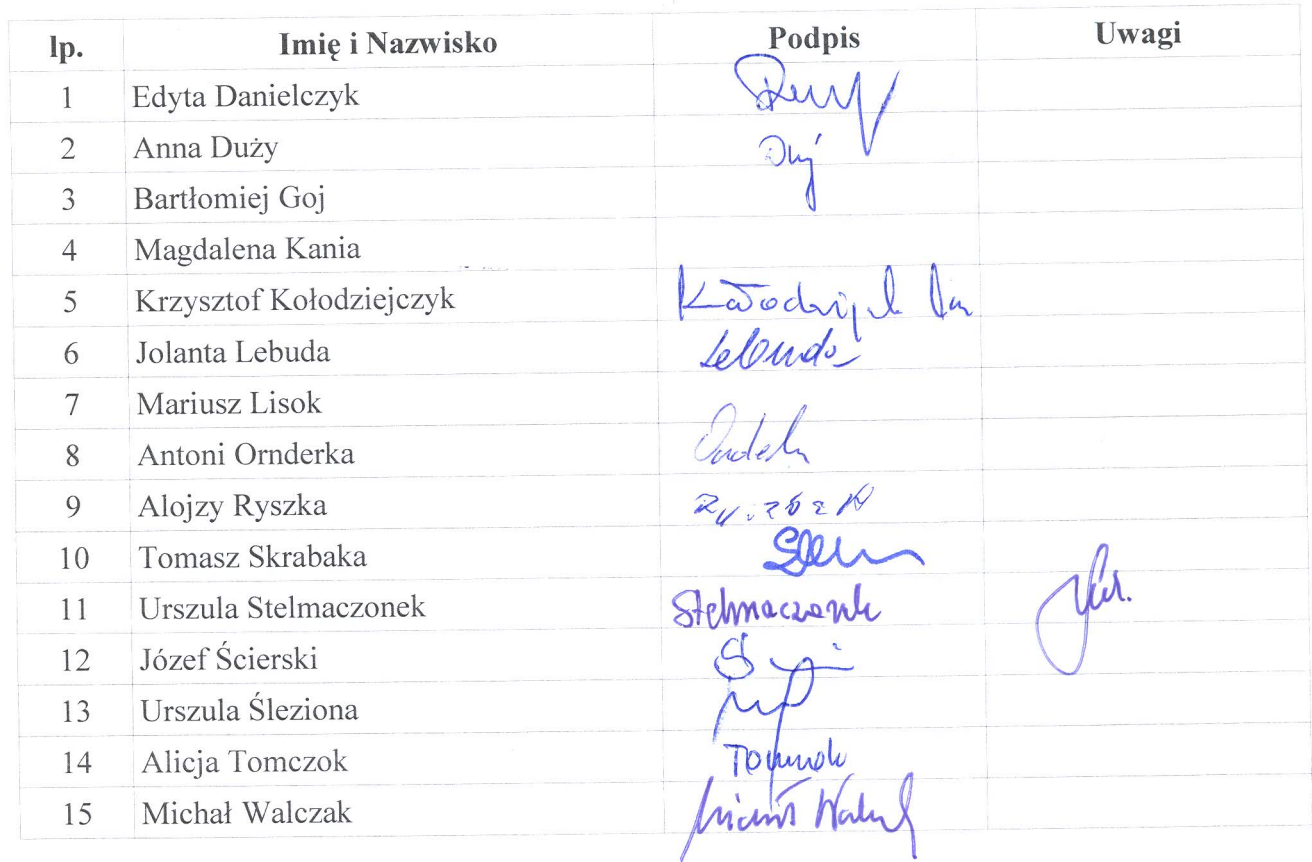 lp. Imię i Nazwisko Podpis Uwagi
1 Edyta Danielczyk
2 Anna Duży
3 Bartłomiej Goj
4 Magdalena Kania
5 Krzysztof Kołodziejczyk
6 Jolanta Lebuda Lebuda
7 Mariusz Lisok
8 Antoni Ornderka
9 Alojzy Ryszka
10 Tomasz Skrabaka
11 Urszula Stelmaczonek Stelmaczonek
12 Józef Ścierski
13 Urszula Śleziona
14 Alicja Tomczok
15 Michał Walczak